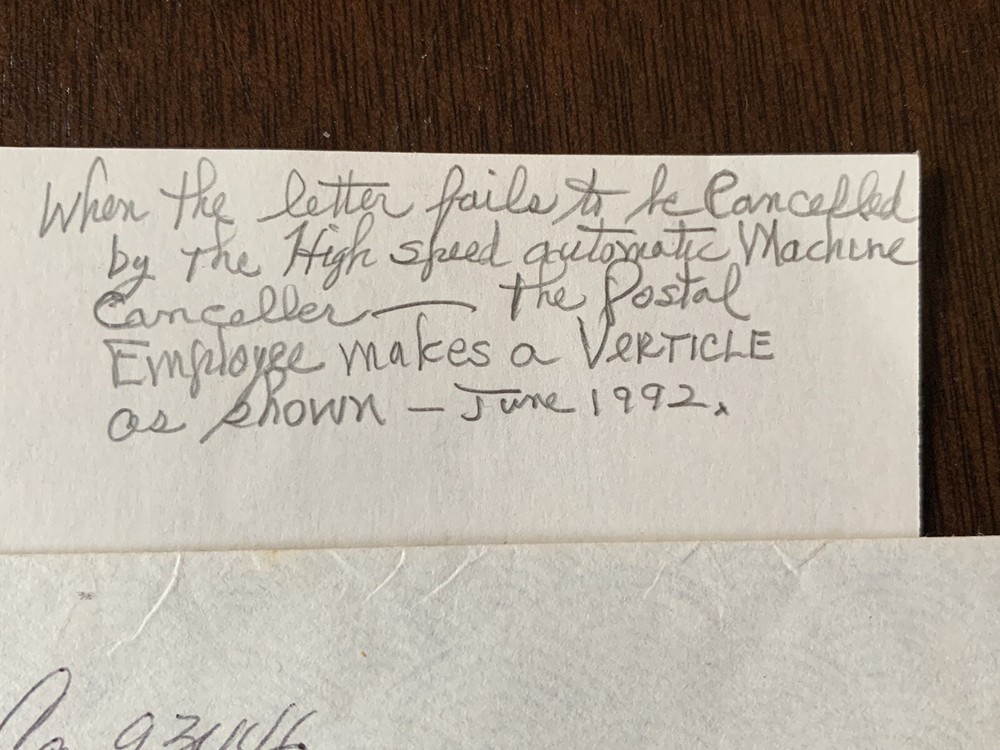 When the letter fails to be Cancelled
by the High speed automatic Machine
Canceller — the Postal
Employee makes a VERTICLE
as shown — June 1992.